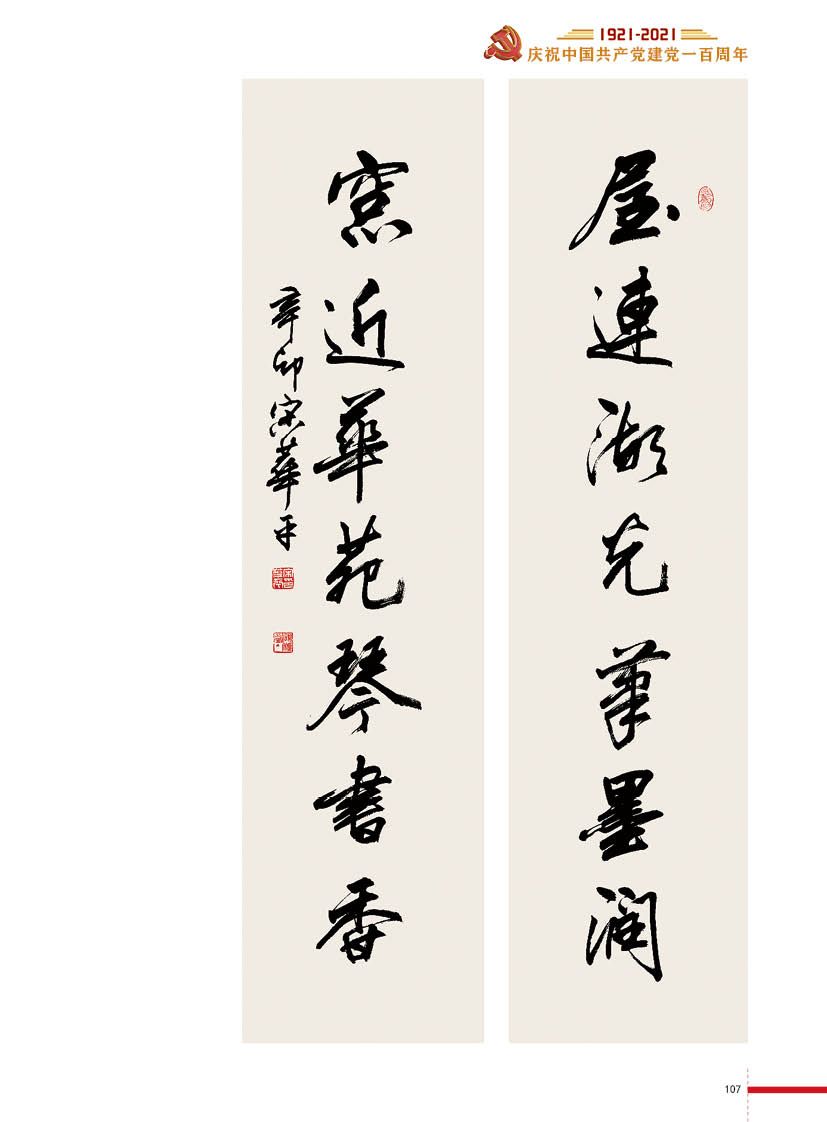 1921-2021
庆祝中国共产党建党一百周年
屋連湖光筆墨潤
窓近華苑琴書香
辛卯宋華平
107